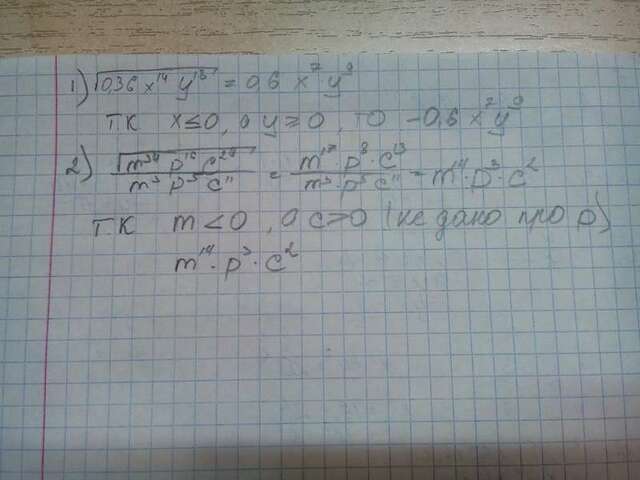 1) √0,36 x¹⁴ y¹⁸ = 0,6 x⁷ y⁹
т.к x ≤ 0, а y ≥ 0, то -0,6 x⁷ y⁹
2) √m³⁴ p¹⁶ c²⁶ / m³ p⁵ c¹¹ = m¹⁷ · p⁸ · c¹³ / m³ · p⁵ c¹¹ = m¹⁴ · p³ · c²
т.к m < 0, а c > 0 (не дано про p)
m¹⁴ · p³ · c²